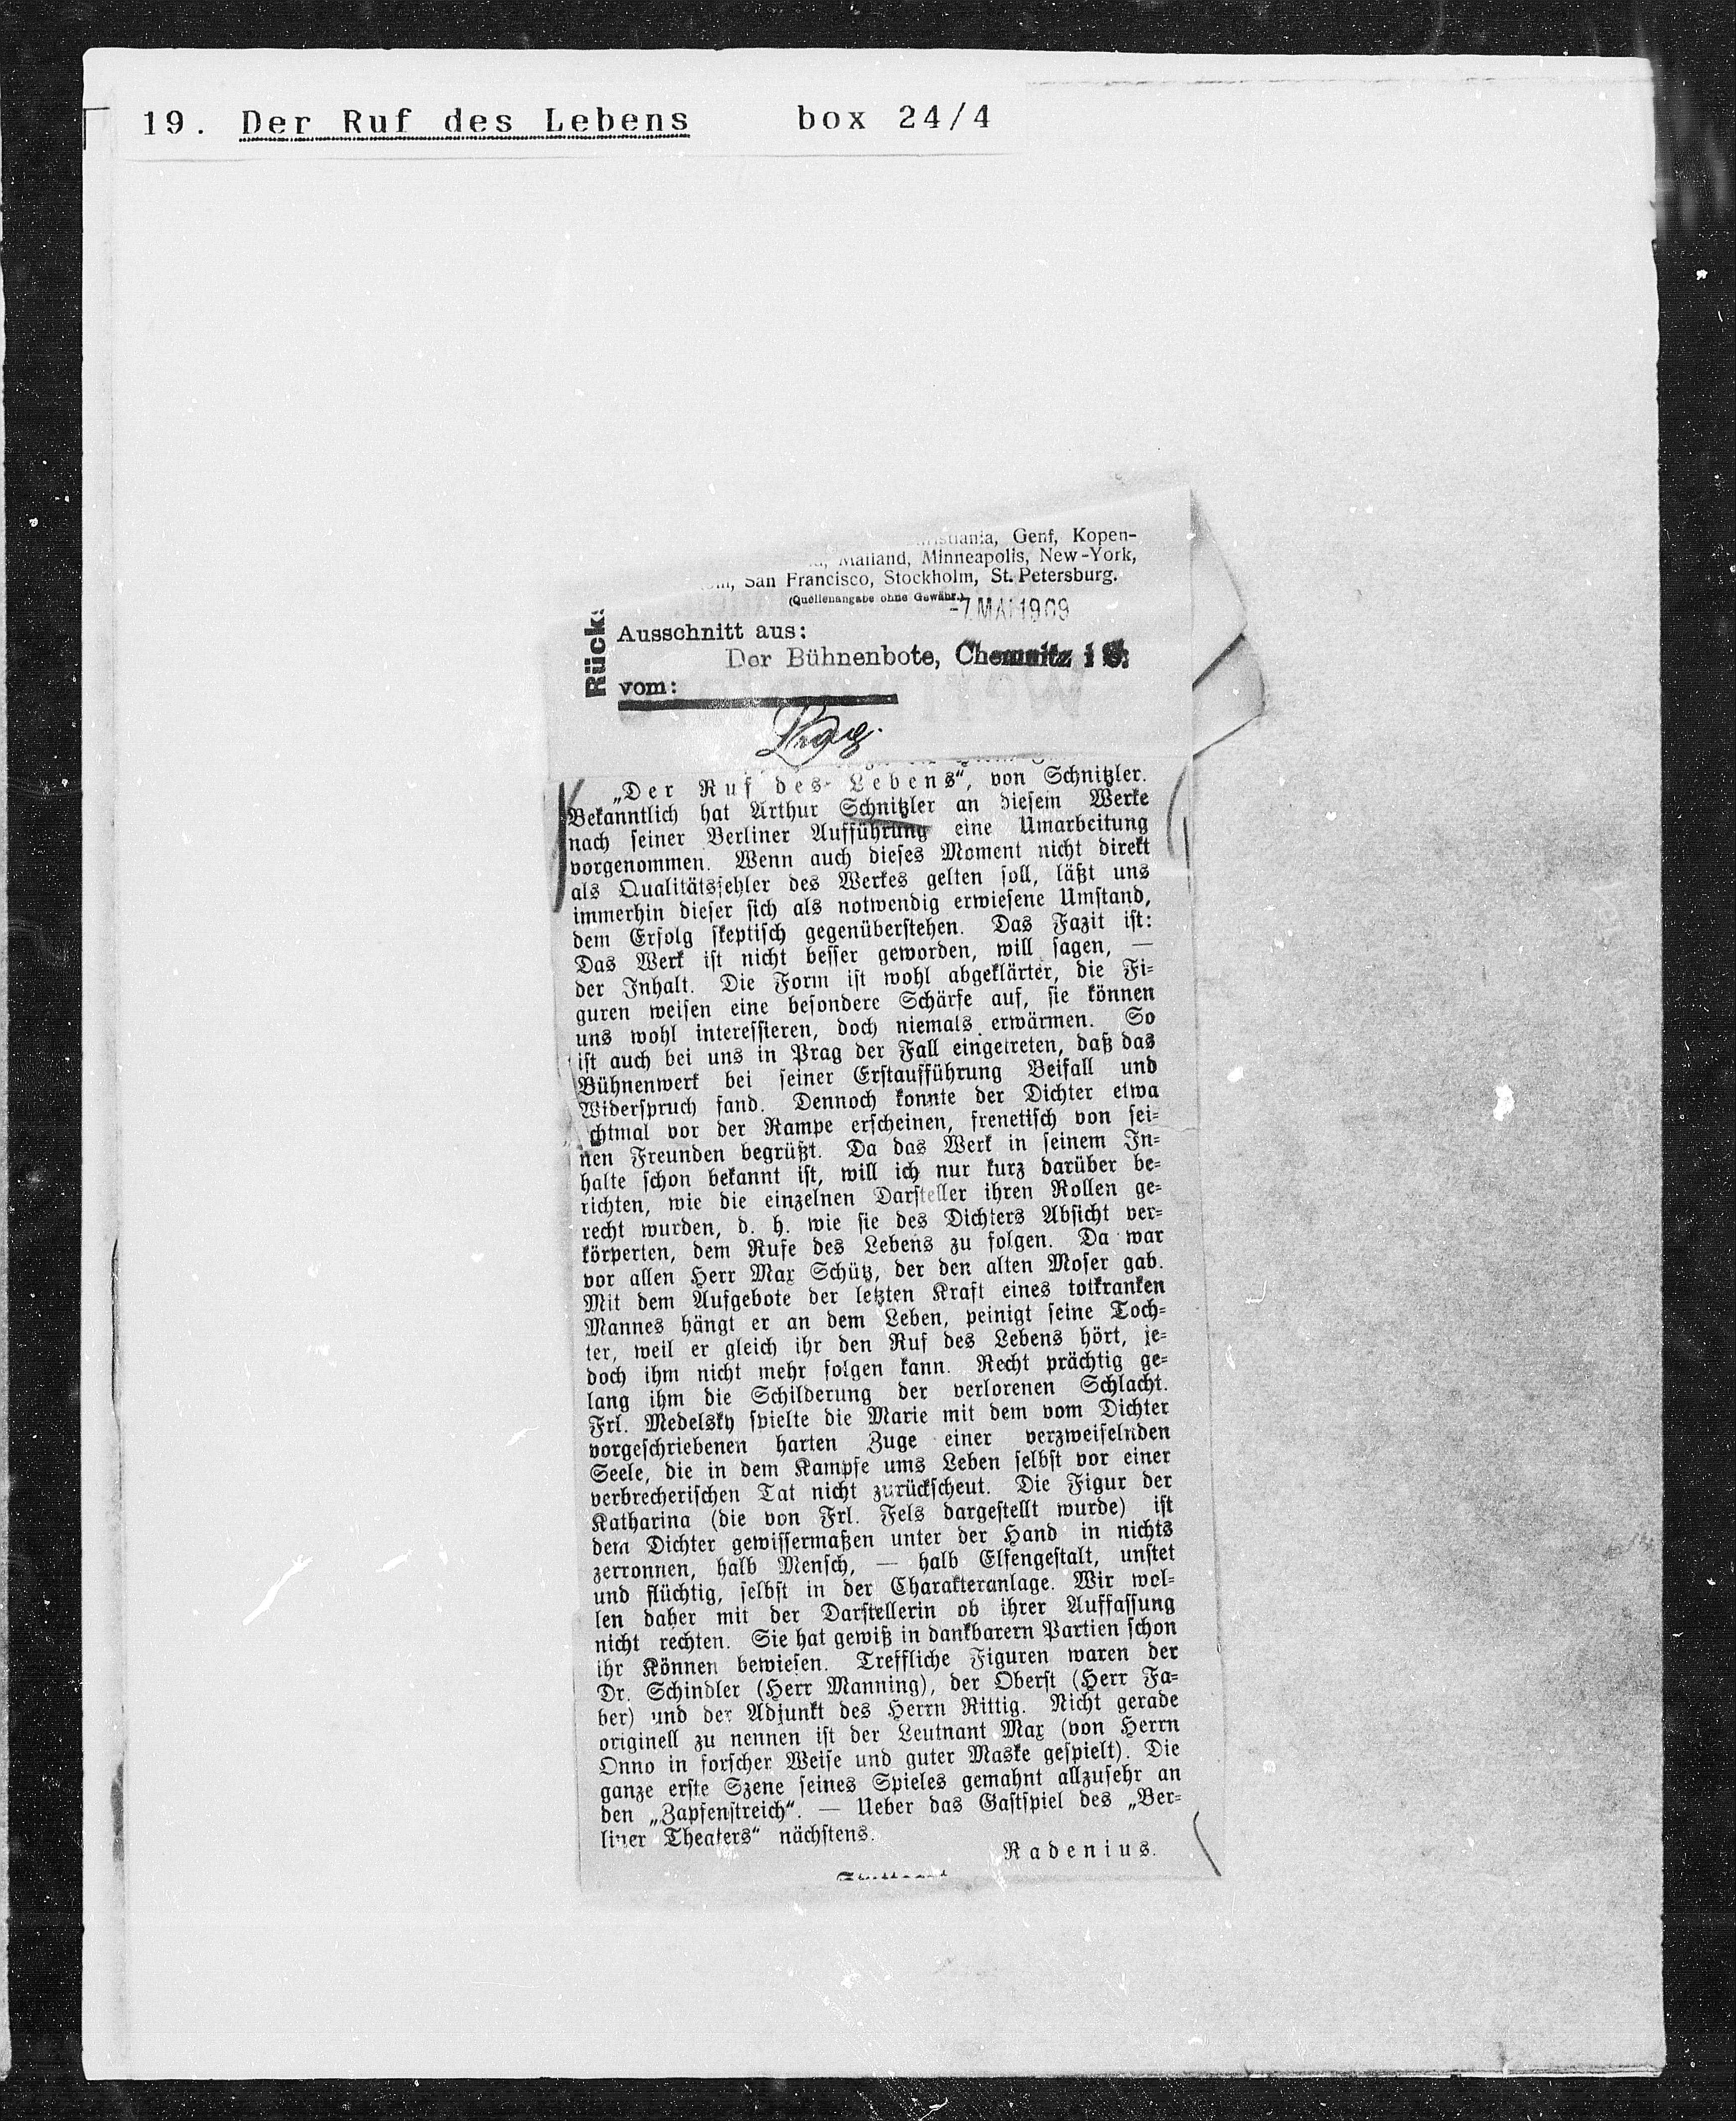 19. Der Ruf des Lebens box 24/4
Genf, Kopen-
Mailand, Minneapolis, New-York,
San Francisco, Stockholm, St. Petersburg.
(Quellenangabe ohne Gewähr.)
-7 MAI 1909
Rück
Ausschnitt aus:
Der Bühnenbote, Chemnitz i S.
vom:
Prag.
„Der Ruf des Lebens“, von Schnitzler.
Bekanntlich hat Arthur Schnitzler an diesem Werke
nach seiner Berliner Aufführung eine Umarbeitung
vorgenommen. Wenn auch dieses Moment nicht direkt
als Qualitätsfehler des Werkes gelten soll, läßt uns
immerhin dieser sich als notwendig erwiesene Umstand,
dem Erfolg skeptisch gegenüberstehen. Das Fazit ist:
Das Werk ist nicht besser geworden, will sagen, —
der Inhalt. Die Form ist wohl abgeklärter, die Fi-
guren weisen eine besondere Schärfe auf, sie können
uns wohl interessieren, doch niemals erwärmen. So
ist auch bei uns in Prag der Fall eingetreten, daß das
Bühnenwerk bei seiner Erstaufführung Beifall und
Widerspruch fand. Dennoch konnte der Dichter etwa
chtmal vor der Rampe erscheinen, frenetisch von sei-
nen Freunden begrüßt. Da das Werk in seinem In-
halte schon bekannt ist, will ich nur kurz darüber be-
richten, wie die einzelnen Darsteller ihren Rollen ge-
recht wurden, d. h. wie sie des Dichters Absicht ver-
körperten, dem Rufe des Lebens zu folgen. Da war
vor allen Herr Max Schütz, der den alten Moser gab.
Mit dem Aufgebote der letzten Kraft eines totkranken
Mannes hängt er an dem Leben, peinigt seine Toch-
ter, weil er gleich ihr den Ruf des Lebens hört, je-
doch ihm nicht mehr folgen kann. Recht prächtig ge-
lang ihm die Schilderung der verlorenen Schlacht.
Frl. Medelsky spielte die Marie mit dem vom Dichter
vorgeschriebenen harten Zuge einer verzweifelnden
Seele, die in dem Kampfe ums Leben selbst vor einer
verbrecherischen Tat nicht zurückscheut. Die Figur der
Katharina (die von Frl. Fels dargestellt wurde) ist
dem Dichter gewissermaßen unter der Hand in nichts
zerronnen, halb Mensch, — halb Elfengestalt, unstet
und flüchtig, selbst in der Charakteranlage. Wir wol-
len daher mit der Darstellerin ob ihrer Auffassung
nicht rechten. Sie hat gewiß in dankbarern Partien schon
ihr Können bewiesen. Treffliche Figuren waren der
Dr. Schindler (Herr Manning), der Oberst (Herr Fa-
ber) und der Adjunkt des Herrn Rittig. Nicht gerade
originell zu nennen ist der Leutnant Max (von Herrn
Onno in forscher Weise und guter Maske gespielt). Die
ganze erste Szene seines Spieles gemahnt allzusehr an
den „Zapfenstreich“. — Ueber das Gastspiel des „Ber-
liner Theaters“ nächstens.
Radenius.